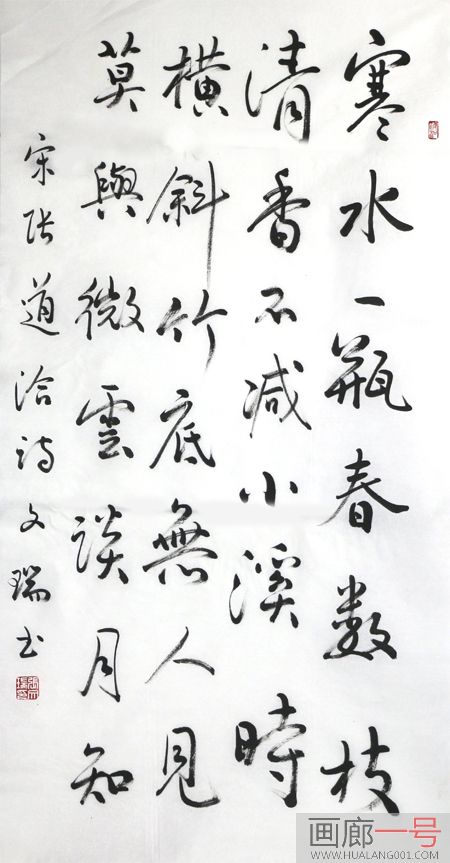 寒水一瓶春数枝
清香不减小溪時
横斜竹底無人見
莫與微雲淡月知
宋张道洽诗 文瑞书
画廊一号
WWW.HUALANG001.COM